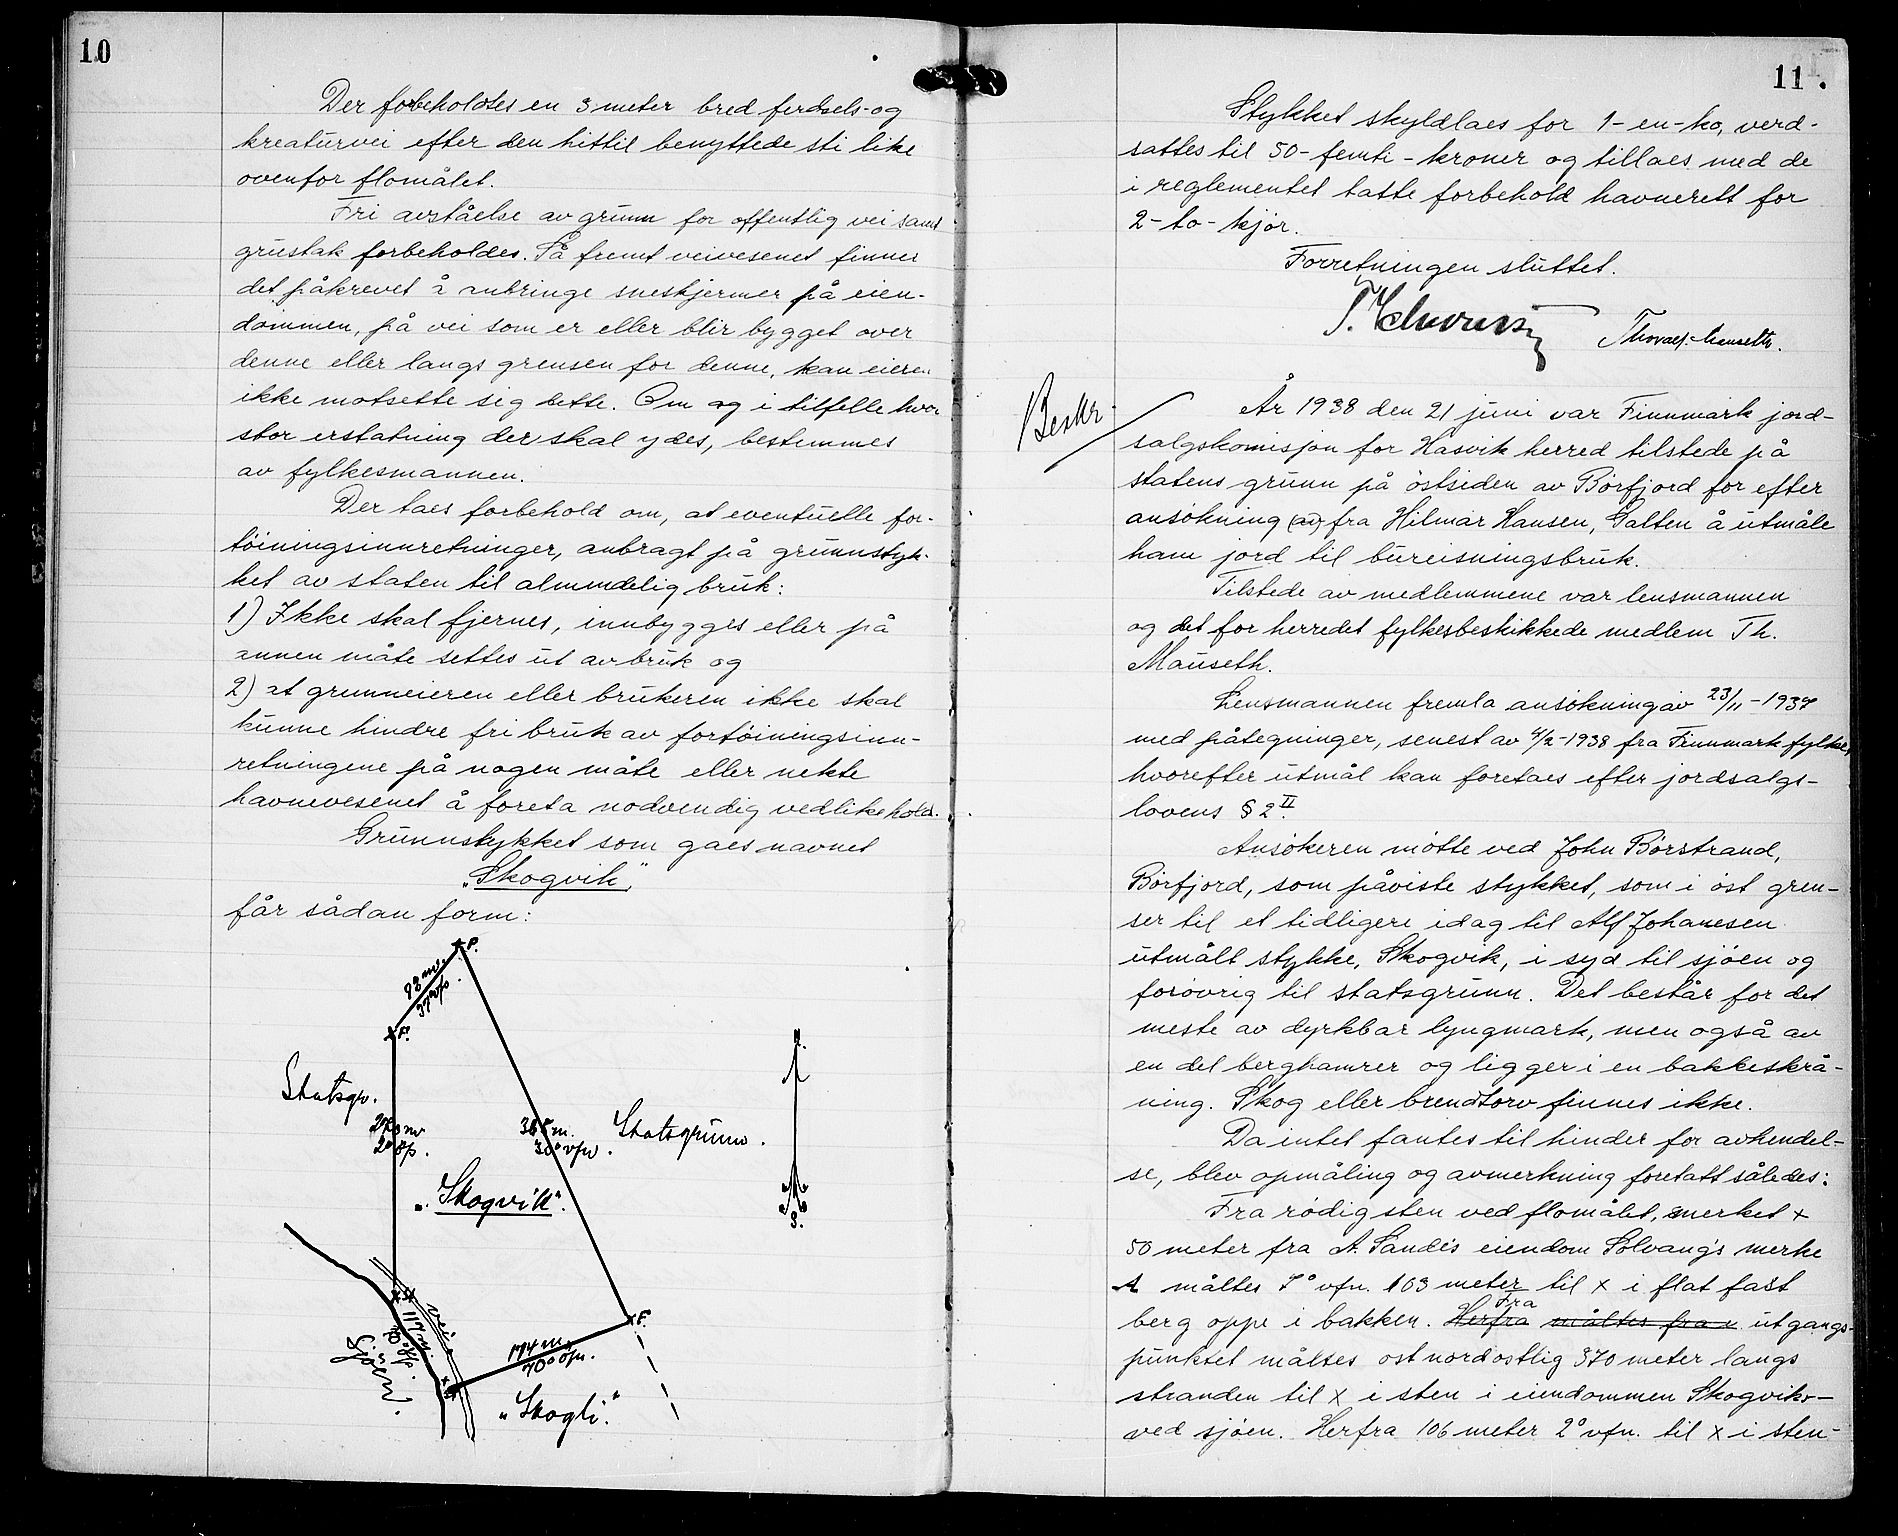 10
Der forbeholdes en 3 meter bred ferdsels- og
kreaturvei efter den hittil benyttede sti like
ovenfor flomålet.
Fri avståelse av grunn for offentlig vei samt
grustak forbeholdes. Så fremt veivesenet finner
det påkrevet å anbringe sneskjermer på eien-
dommen, på vei som er eller blir bygget over
denne eller langs grensen for denne, kan eieren
ikke motsette sig dette. Om og i tilfelle hvor
stor erstatning der skal ydes, bestemmes
av fylkesmannen.
Der taes forbehold om, at eventuelle for-
tøiningsinnretninger, anbragt på grunnstyk-
ket av staten til almindelig bruk:
1) Ikke skal fjernes, innbygges eller på
annen måte settes ut av bruk og
2) at grunneieren eller brukeren ikke skal
kunne hindre fri bruk av fortøiningsinn-
retningene på nogen måte eller nekte
havnevesenet å foreta nødvendig vedlikehold.
Grunnstykket som gaes navnet
"Skogvik",
får sådan form:
F.
F.
Statsgr.
Statsgrunn.
"Skogvik".
N.
S.
vei
Sjøen.
174 m.
70° øfn.
117 m.
F.
"Skogli."
11.
Stykket skyldlaes for 1- en - ko, verd-
sattes til 50 - femti - kroner og tillaes med de
i reglementet tatte forbehold havnerett for
2 - to - kjør.
Forretningen sluttet.
Thorval. Mauseth.
Beskr.
År 1938 den 21 juni var Finnmark jord-
salgskomisjon for Hasvik herred tilstede på
statens grunn på østsiden av Børfjord for efter
ansøkning (av) fra Hilmar Hansen, Galten å utmåle
ham jord til bureisningsbruk.
Tilstede av medlemmene var lensmannen
og det for herredet fylkesbeskikkede medlem Th.
Mauseth.
Lensmannen fremla ansøkning av 23/11 - 1937
med påtegninger, senest av 4/2 - 1938 fra Finnmark fylke,
hvorefter utmål kan foretaes efter jordsalgs-
lovens § 2 II.
Ansøkeren møtte ved John Børstrand,
Børfjord, som påviste stykket, som i øst gren-
ser til et tidligere idag til Alf Johanesen
utmålt stykke, Skogvik, i syd til sjøen og
forøvrig til statsgrunn. Det består for det
meste av dyrkbar lyngmark, men også av
en del berghamrer og ligger i en bakkeskrå-
ning. Skog eller brendtorv finnes ikke.
Da intet fantes til hinder for avhendel-
se, blev opmåling og avmerkning foretatt således:
Fra rødig sten ved flomålet, merket x
50 meter fra A. Sandes eiendom Solvangs merke
A måltes 7° vfn. 103 meter til x i flat fast
berg oppe i bakken. Herfra måltes fra Fra utgangs-
punktet måltes ostnordostlig 370 meter langs
stranden til x i sten i eiendommen Skogviks
ved sjøen. Herfra 106 meter 2° vfn. til x i sten